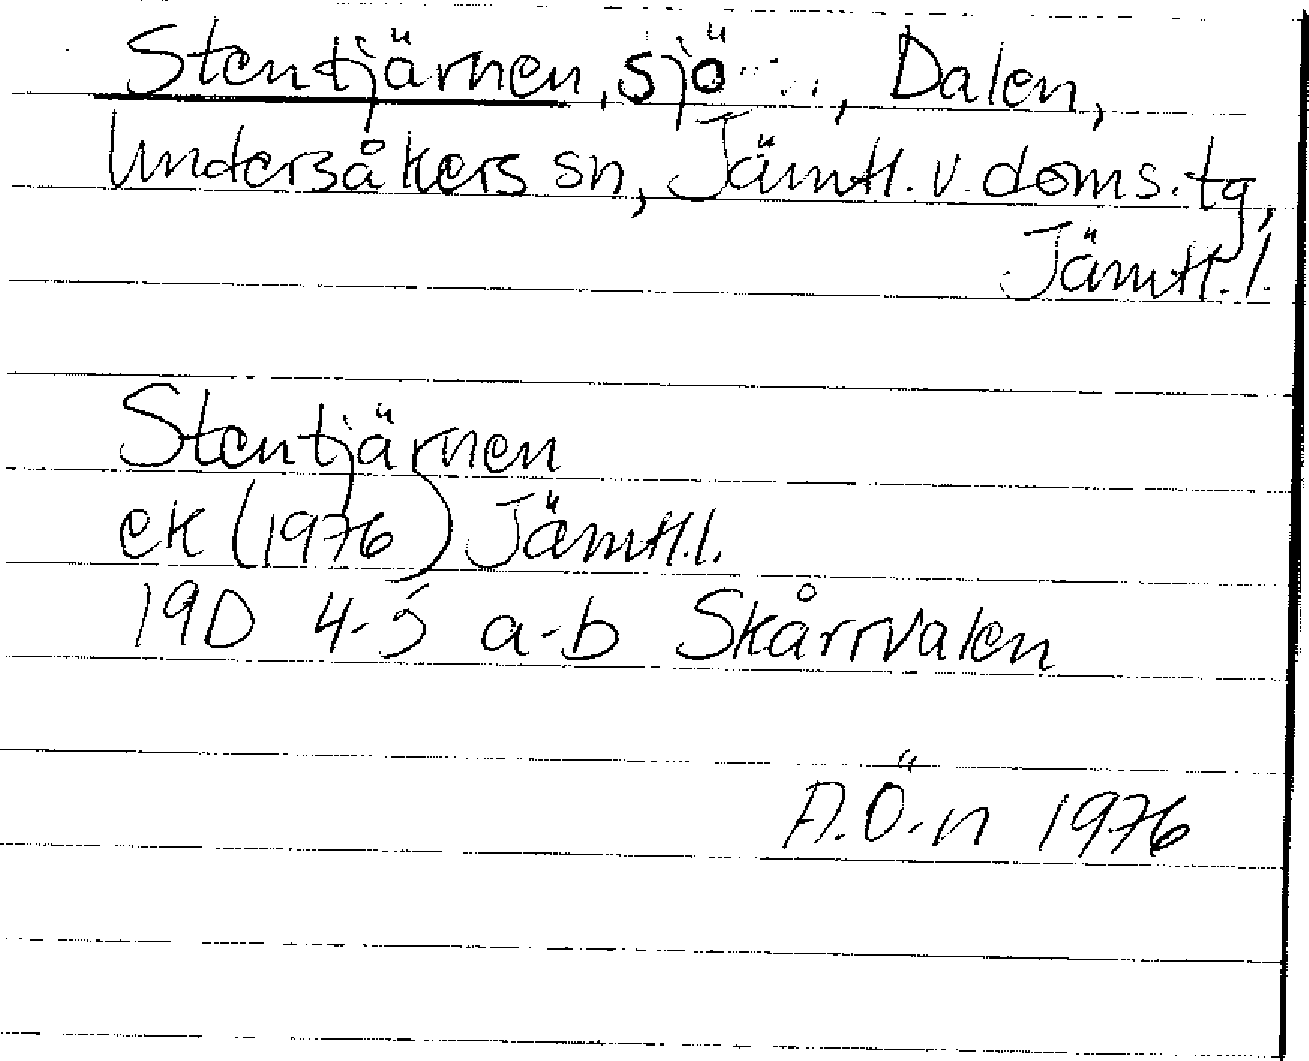 Stentjärnen, sjö, Dalen,
Undersåkers sn, Jämtl. v. doms. tg,
Jämtl. l.
Stentjärnen
ek (1976) Jämtl. l.
19D 4-5 a-b Skårrvalen
A.Ö-n 1976